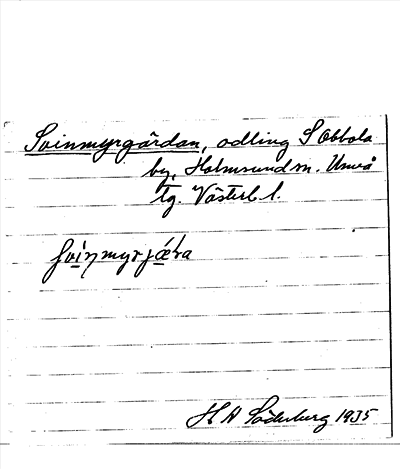 Svinmyrgärdan, odling S Obbola
by, Holmsund sn. Umeå
tg. Västerb l.
svi̲nmyrjæ̲ra
H A Söderberg 1935